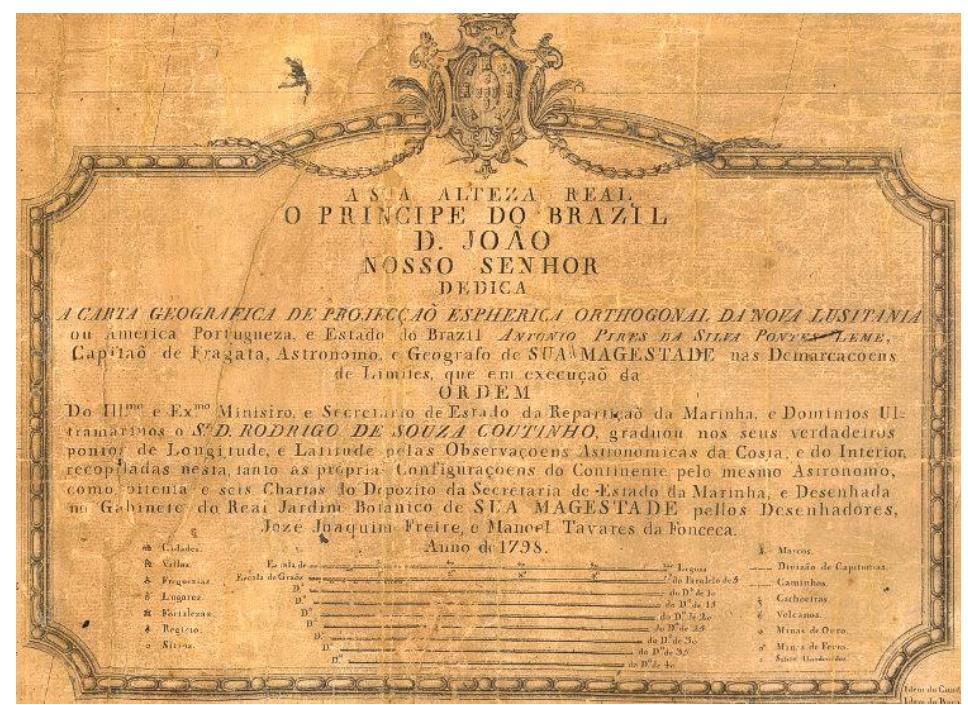 A SUA ALTEZA REAL
O PRINCIPE DO BRAZIL
D. JOAÕ
NOSSO SENHOR
DEDICA
A CARTA GEOGRAFICA DE PROJECÇAÕ ESPHERICA ORTHOGONAL DA NOVA LUSITANIA
ou America Portugueza, e Estado do Brazil ANTONIO PIRES DA SILVA PONTES LEME,
Capitaõ de Fragata, Astronomo, e Geografo de SUA MAGESTADE nas Demarcacoens
de Limites, que em execuçaõ da
ORDEM
Do Illmo e Exmo Ministro, e Secretario de Estado da Repartiçaõ da Marinha, e Dominios Ul-
tramarinos o Sr D. RODRIGO DE SOUZA COUTINHO, graduou nos seus verdadeiros
pontos de Longitude, e Latitude pelas Observaçoens Astronomicas da Costa, e do Interior,
recopiladas nesta, tanto as proprias Configuraçoens do Continente pelo mesmo Astronomo,
como oitenta e seis Chartas do Depozito da Secretaria de Estado da Marinha, e Desenhada
no Gabinete do Real Jardim Botanico de SUA MAGESTADE pellos Desenhadores,
Joze Joaquim Freire, e Manoel Tavares da Fonceca.
Anno de 1798.
Cidades.
Villas.
Freguezias.
Lugares.
Fortalezas.
Registo.
Sitios.
Escala de Legoas
Escala de Graõs do Paralelo de 5
Do do Do de 10
Do do Do de 15
Do do Do de 20
Do do Do de 25
Do do Do de 30
Do do Do de 35
Do do Do de 40
Marcos.
Divizão de Capitanias.
Caminhos.
Cachoeiras.
Volcanos.
Minas de Ouro.
Minas de Ferro.
Idem do
Idem do